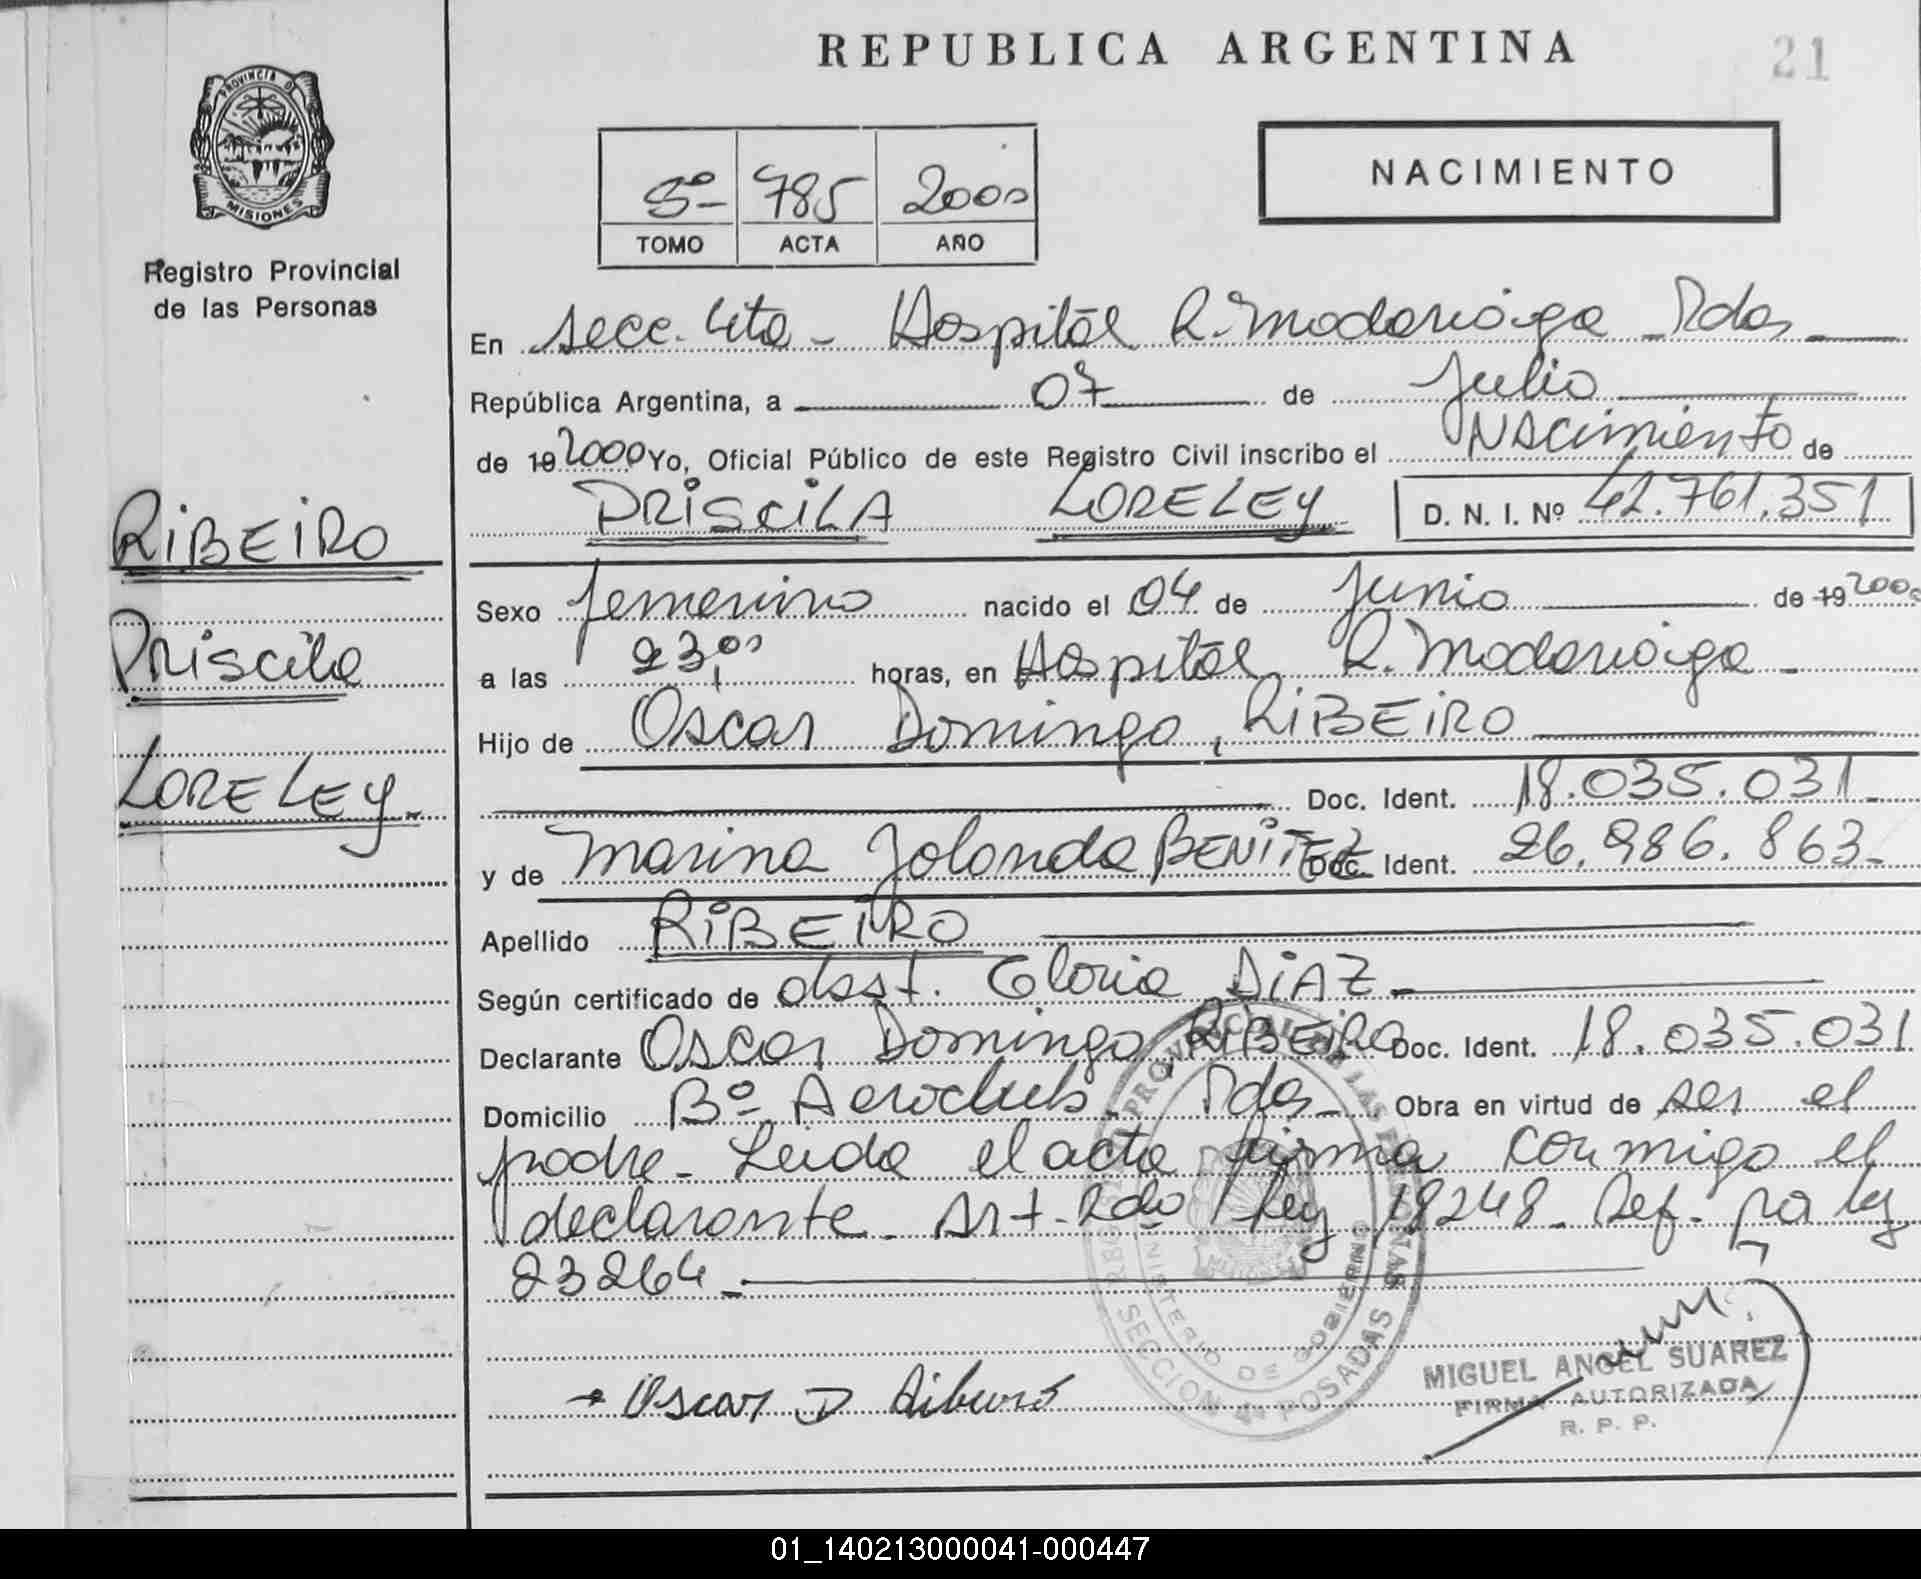 REPUBLICA ARGENTINA
21
PROVINCIA DE
MISIONES
Registro Provincial
de las Personas
5º 785 2000
TOMO ACTA AÑO
NACIMIENTO
En Secc. 4ta - Hospital R. Madariaga - Pdas
República Argentina, a 07 de Julio
de 19 2000 Yo, Oficial Público de este Registro Civil inscribo el Nacimiento de
PRISCILA LORELEY D. N. I. Nº 42.761.351
RIBEIRO
Priscila
LORELEY.
Sexo femenino nacido el 04 de Junio de 19 2000
a las 23,00 horas, en Hospital R. Madariaga -
Hijo de Oscar Domingo, RIBEIRO
Doc. Ident. 18.035.031
y de Marina Jolanda BENITEZ Doc. Ident. 26.986.863-
Apellido RIBEIRO
Según certificado de obst. Gloria DIAZ
Declarante Oscar Domingo, RIBEIRO Doc. Ident. 18.035.031
Domicilio Bº Aeroclub - Pdas Obra en virtud de ser el
padre - Leida el acta firma conmigo el
declarante - Art. 2do Ley 18248 - Def. por ley
23264 -
Oscar D Ribeiro
MIGUEL ANGEL SUAREZ
FIRMA AUTORIZADA
R. P. P.
MINISTERIO DE GOBIERNO
SECCION 4ª POSADAS
01_140213000041-000447